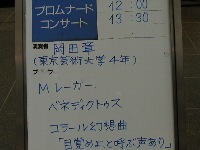 プロムナード
コンサート
12:00
13:30
演奏者
岡田 章
(東京芸術大学4年)
プログラム
M.レーガー
ベネディクトゥス
コラール幻想曲
「目覚めよと呼ぶ声あり」